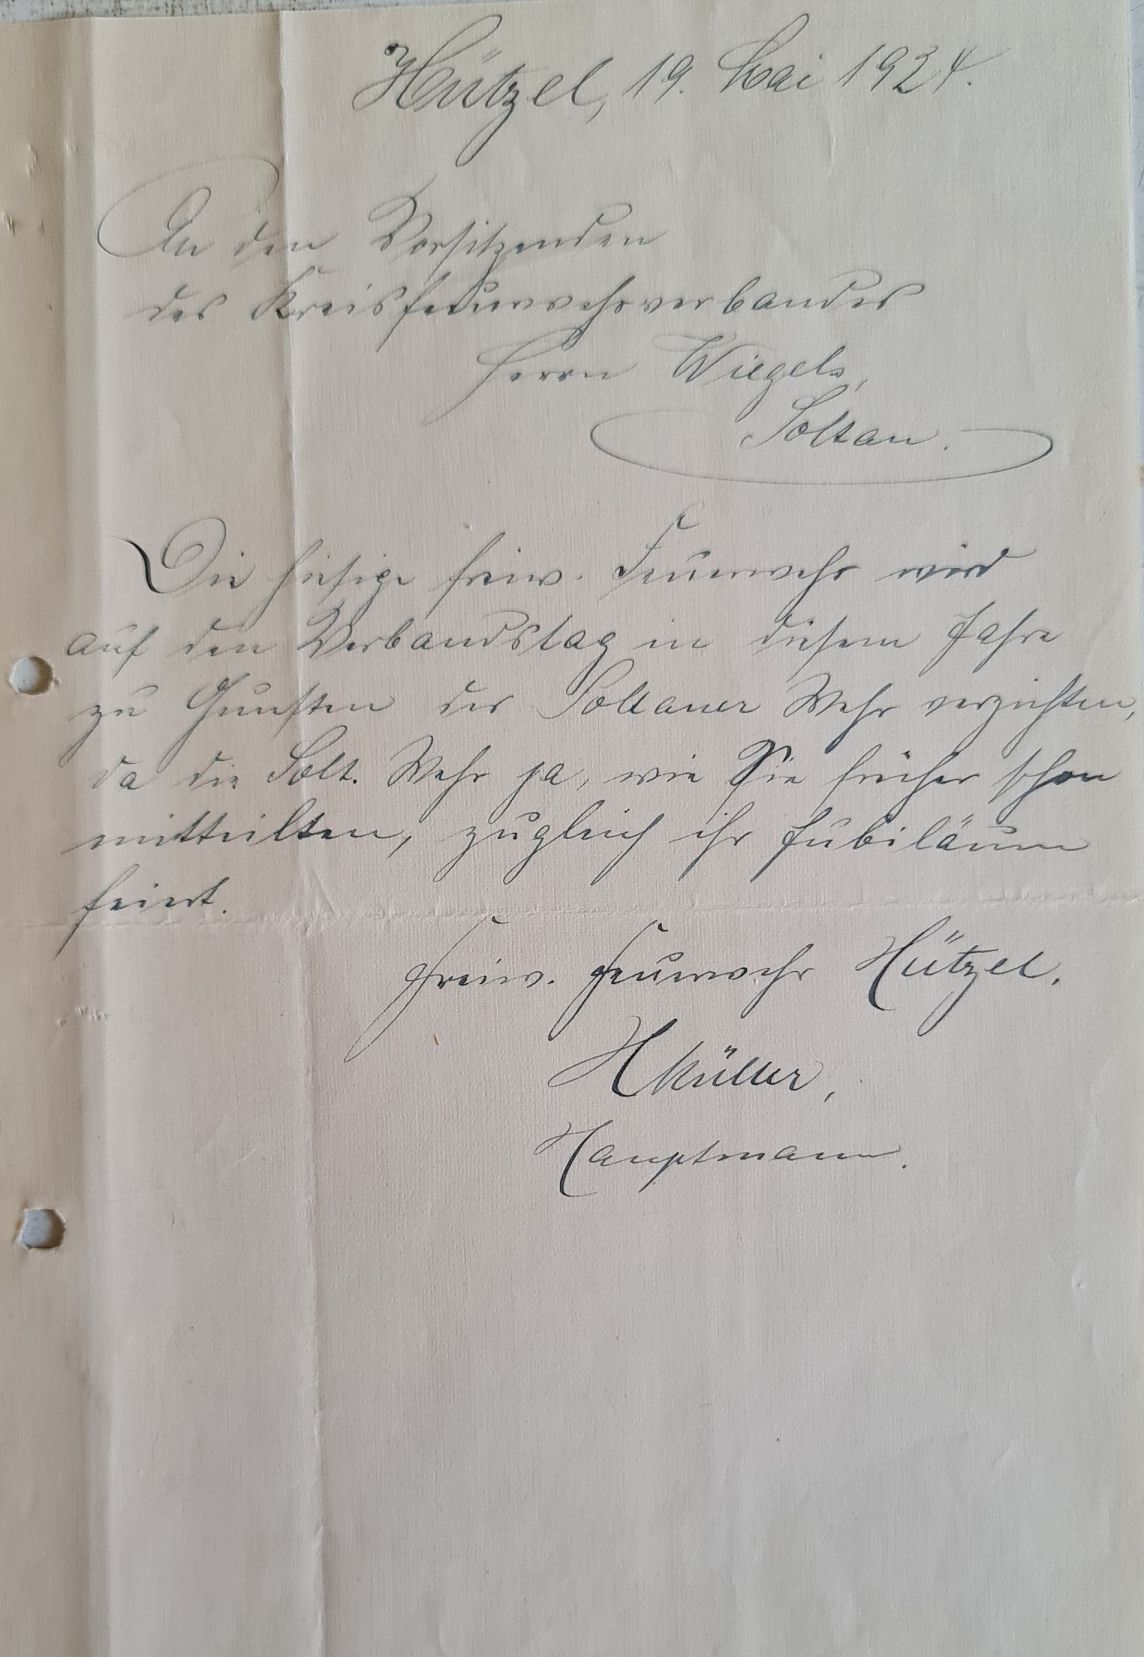 Hützel, 19. Mai 1924.
An den Vorsitzenden
des Kreisfeuerwehrverbandes
Herrn Wiegels,
Soltau.
Die hiesige freiw. Feuerwehr wird
auf den Verbandstag in diesem Jahre
zu Gunsten der Soltauer Wehr verzichten,
da die Solt. Wehr ja, wie Sie früher schon
mitteilten, zugleich ihr Jubiläum
feiert.
Freiw. Feuerwehr Hützel.
H Müller,
Hauptmann.